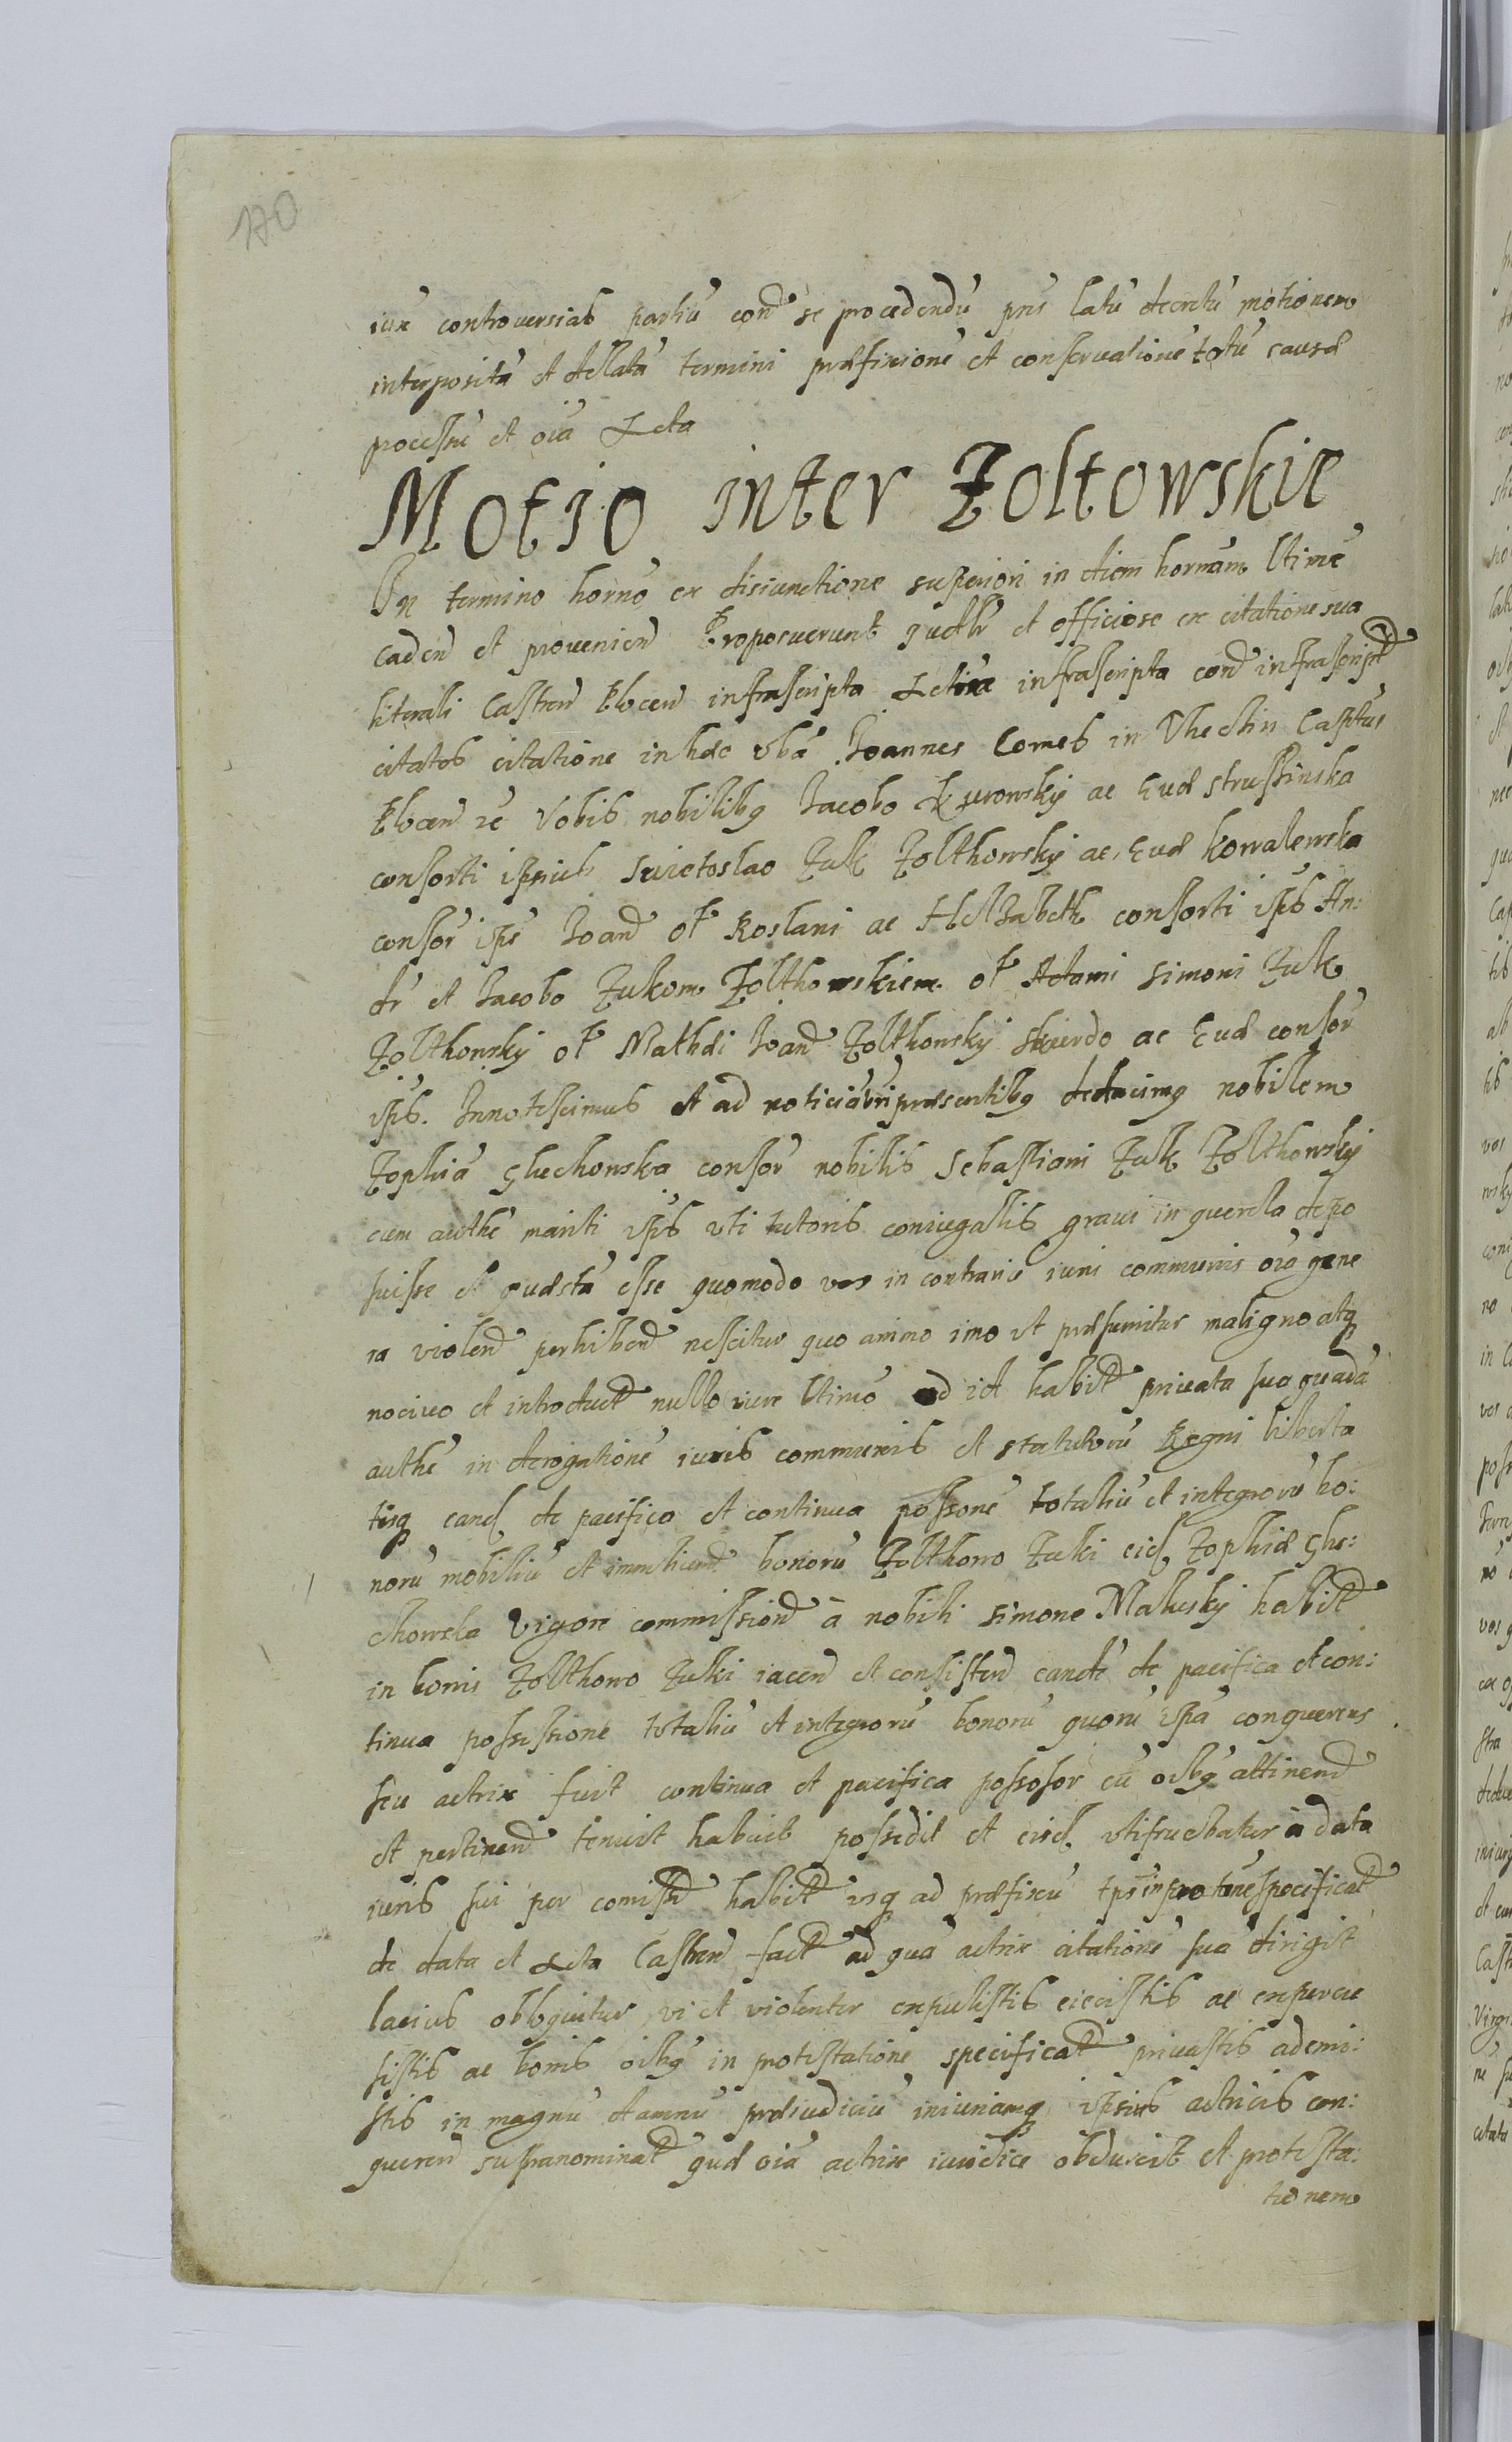 170
iux controversias partiū cond se procedendū pris latū decretū motionem
interpositā et dellatā termini præfixionē et conservationē totū causæ
processū et oia Acta
Motio inter Zoltowskie
In termino horno ex disiunctione superiori in diem hornam ltime
caden et provenien Proposuerunt et officiose ex citatione sua
literali Castren Plocen infrascripta Actrix infrascripta cond infrascript
citatos citatione in hæc vba Joannes Comes in Thechin Captus
Plocen Vobis nobilibq Jacobo Kurowskij ac Evæ strussinska
consorti ipsius Swietoslao Zuk Zolthowskij ac Evæ kowalewska
consor ips Joand ol Roslani ac Helzabeth consorti ipsis An:
dr et Jacobo Zukom Zolthowskiem ol Adami Simoni Zuk
Zolthowskij ol Mathæi Joand Zolthowskij skwerdo ac Evæ consor
ipsis. Innotescimus et ad noticiā vri præsentibq deducimq nobilem
Zophiā Glechowska consor nobilis Sebastiani Zuk Zolthowskij
cum authe mariti ipsis uti tutoris coniugalis gravi in querela depo
suisse et quæstā esse quomodo vos in contrariū iuri communis oio gene
ra violend perhibend nescitur quo animo imo ut præsumitur maligno atq
nocivo et introduct nullo iure ltimo ad id habit privata sua quadā
authe in derogationē iuris communis et statutorū Regni liberta
tisq eand de pacifica et continua possone totaliū et integrorū bo:
norū mobiliū et immlium bonorū Zolthowo Zuki eid Zophiæ Gle:
chowska vigore commissiond à nobili Simone Maluskij habit
in bonis Zolthowo Zuki iacen et consisten eande de pacifica et con:
tinua possessione totaliū et integrorū bonorū quorū ipsa conquerens
seu actrix fuit continua et pacifica possesor cū oibq attinend
et pertinend tenuit habuit possedit et eisd utifruebatur à data
iuris sui per comissid habit usq ad præfixū tps in specificat
de data et Acta Castren fact ad quā actrix citationē suā dirigit
lacius obloquitur vi et violenter expulistis eiecistis ac expercu
sistis ac bonis oibq in protestatione specificat privastis ademi:
stis in magnū damnū præiudiciū iniuriamq ipsius actricis con:
queren supranominat quæ oia actrix iuridice obduxit et protesta:
tionem